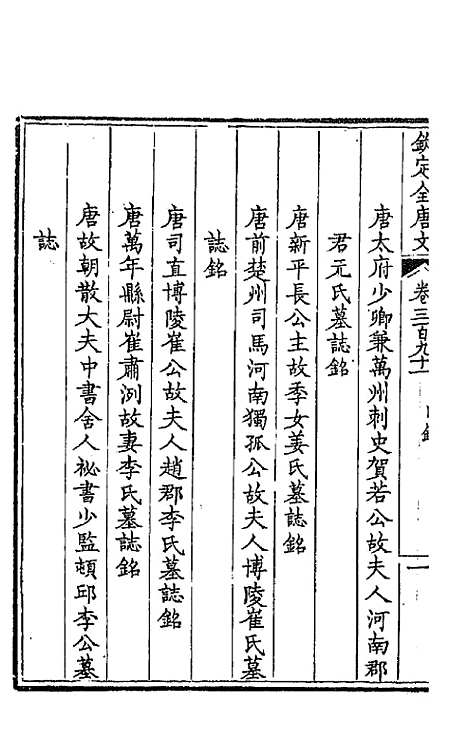 欽定全唐文 卷三百九十 目錄 一
唐太府少卿兼萬州刺史賀若公故夫人河南郡
君元氏墓誌銘
唐新平長公主故季女姜氏墓誌銘
唐前楚州司馬河南獨孤公故夫人博陵崔氏墓
誌銘
唐司直博陵崔公故夫人趙郡李氏墓誌銘
唐萬年縣尉崔肅洌故妻李氏墓誌銘
唐故朝散大夫中書舍人祕書少監頓邱李公墓
誌